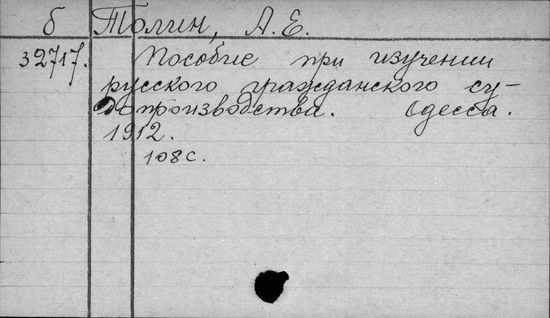 б Толин, А.Е.
32717. Пособие при изучении
русского гражданского су-
допроизводства. Одесса.
1912.
108с.